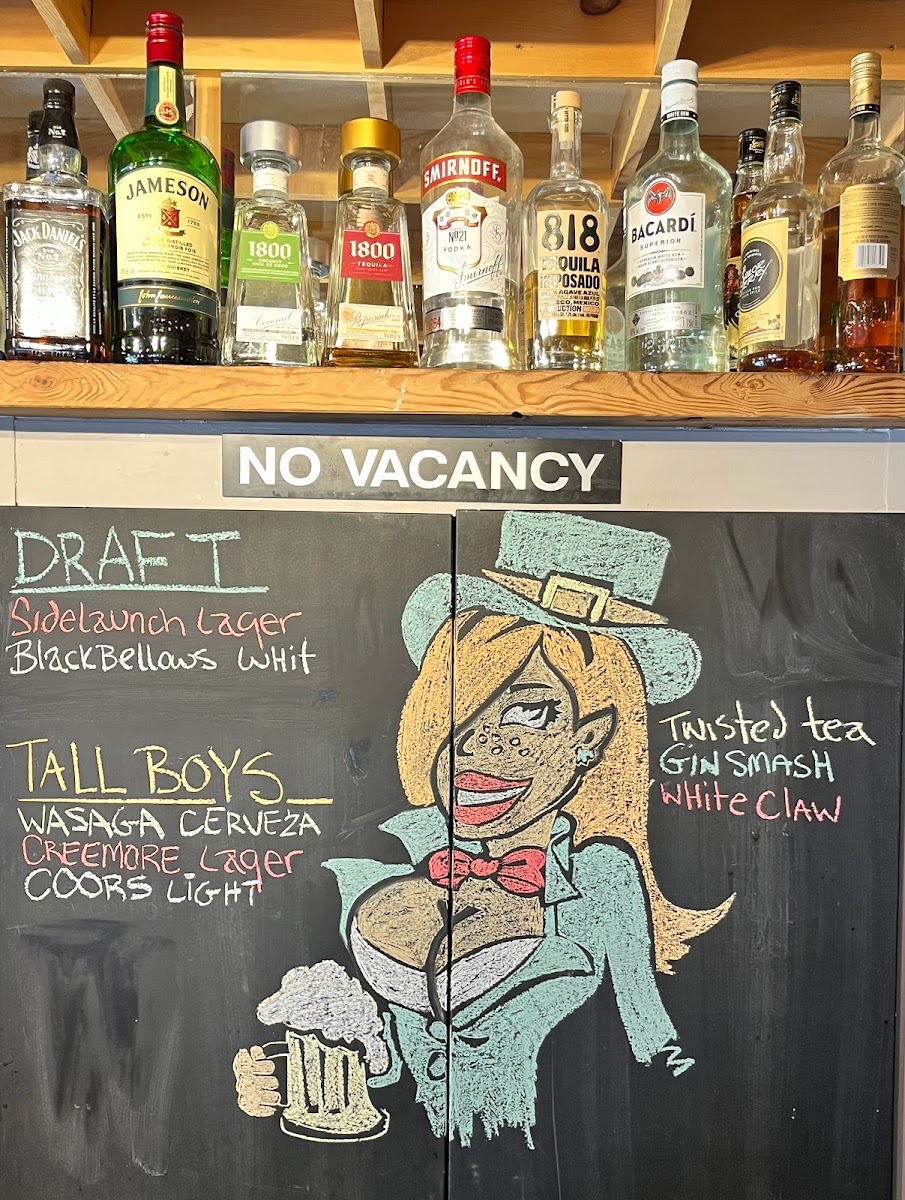 No. 7
JACK DANIEL'S
JAMESON
ESTD 1780
John Jameson
1800
TEQUILA
Reposado
1800
SMIRNOFF
No21
VODKA
Smirnoff
818
TEQUILA
REPOSADO
BACARDÍ
SUPERIOR
NO VACANCY
DRAFT
Sidelaunch Lager
BlackBellows Whit
TALL BOYS
WASAGA CERVEZA
CREEMORE Lager
COORS LIGHT
Twisted tea
GIN SMASH
White Claw